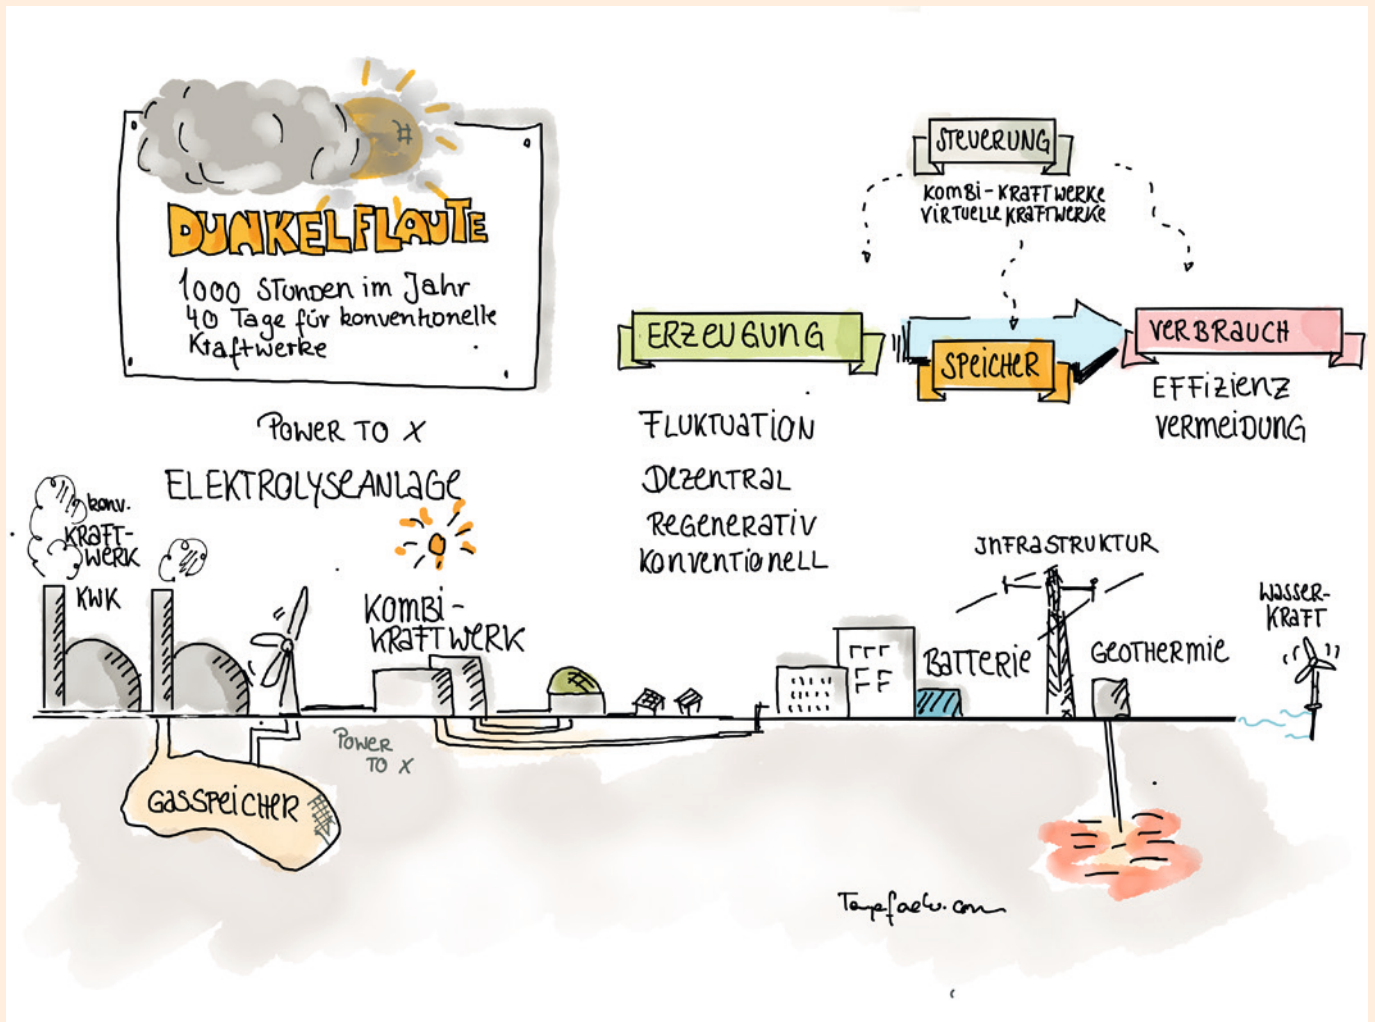 DUNKELFLAUTE
1000 STUNDEN im Jahr
40 Tage für konventionelle
Kraftwerke
STEUERUNG
KOMBI-KRAFTWERKE
VIRTUELLE KRAFTWERKE
ERZEUGUNG
SPEICHER
VERBRAUCH
EFFIZIENZ
VERMEIDUNG
FLUKTUATION
DEZENTRAL
REGENERATIV
KONVENTIONELL
POWER TO X
ELEKTROLYSEANLAGE
konv.
KRAFT-
WERK
KWK
KOMBI-
KRAFTWERK
INFRASTRUKTUR
BATTERIE
GEOTHERMIE
WASSER-
KRAFT
POWER
TO X
GASSPEICHER